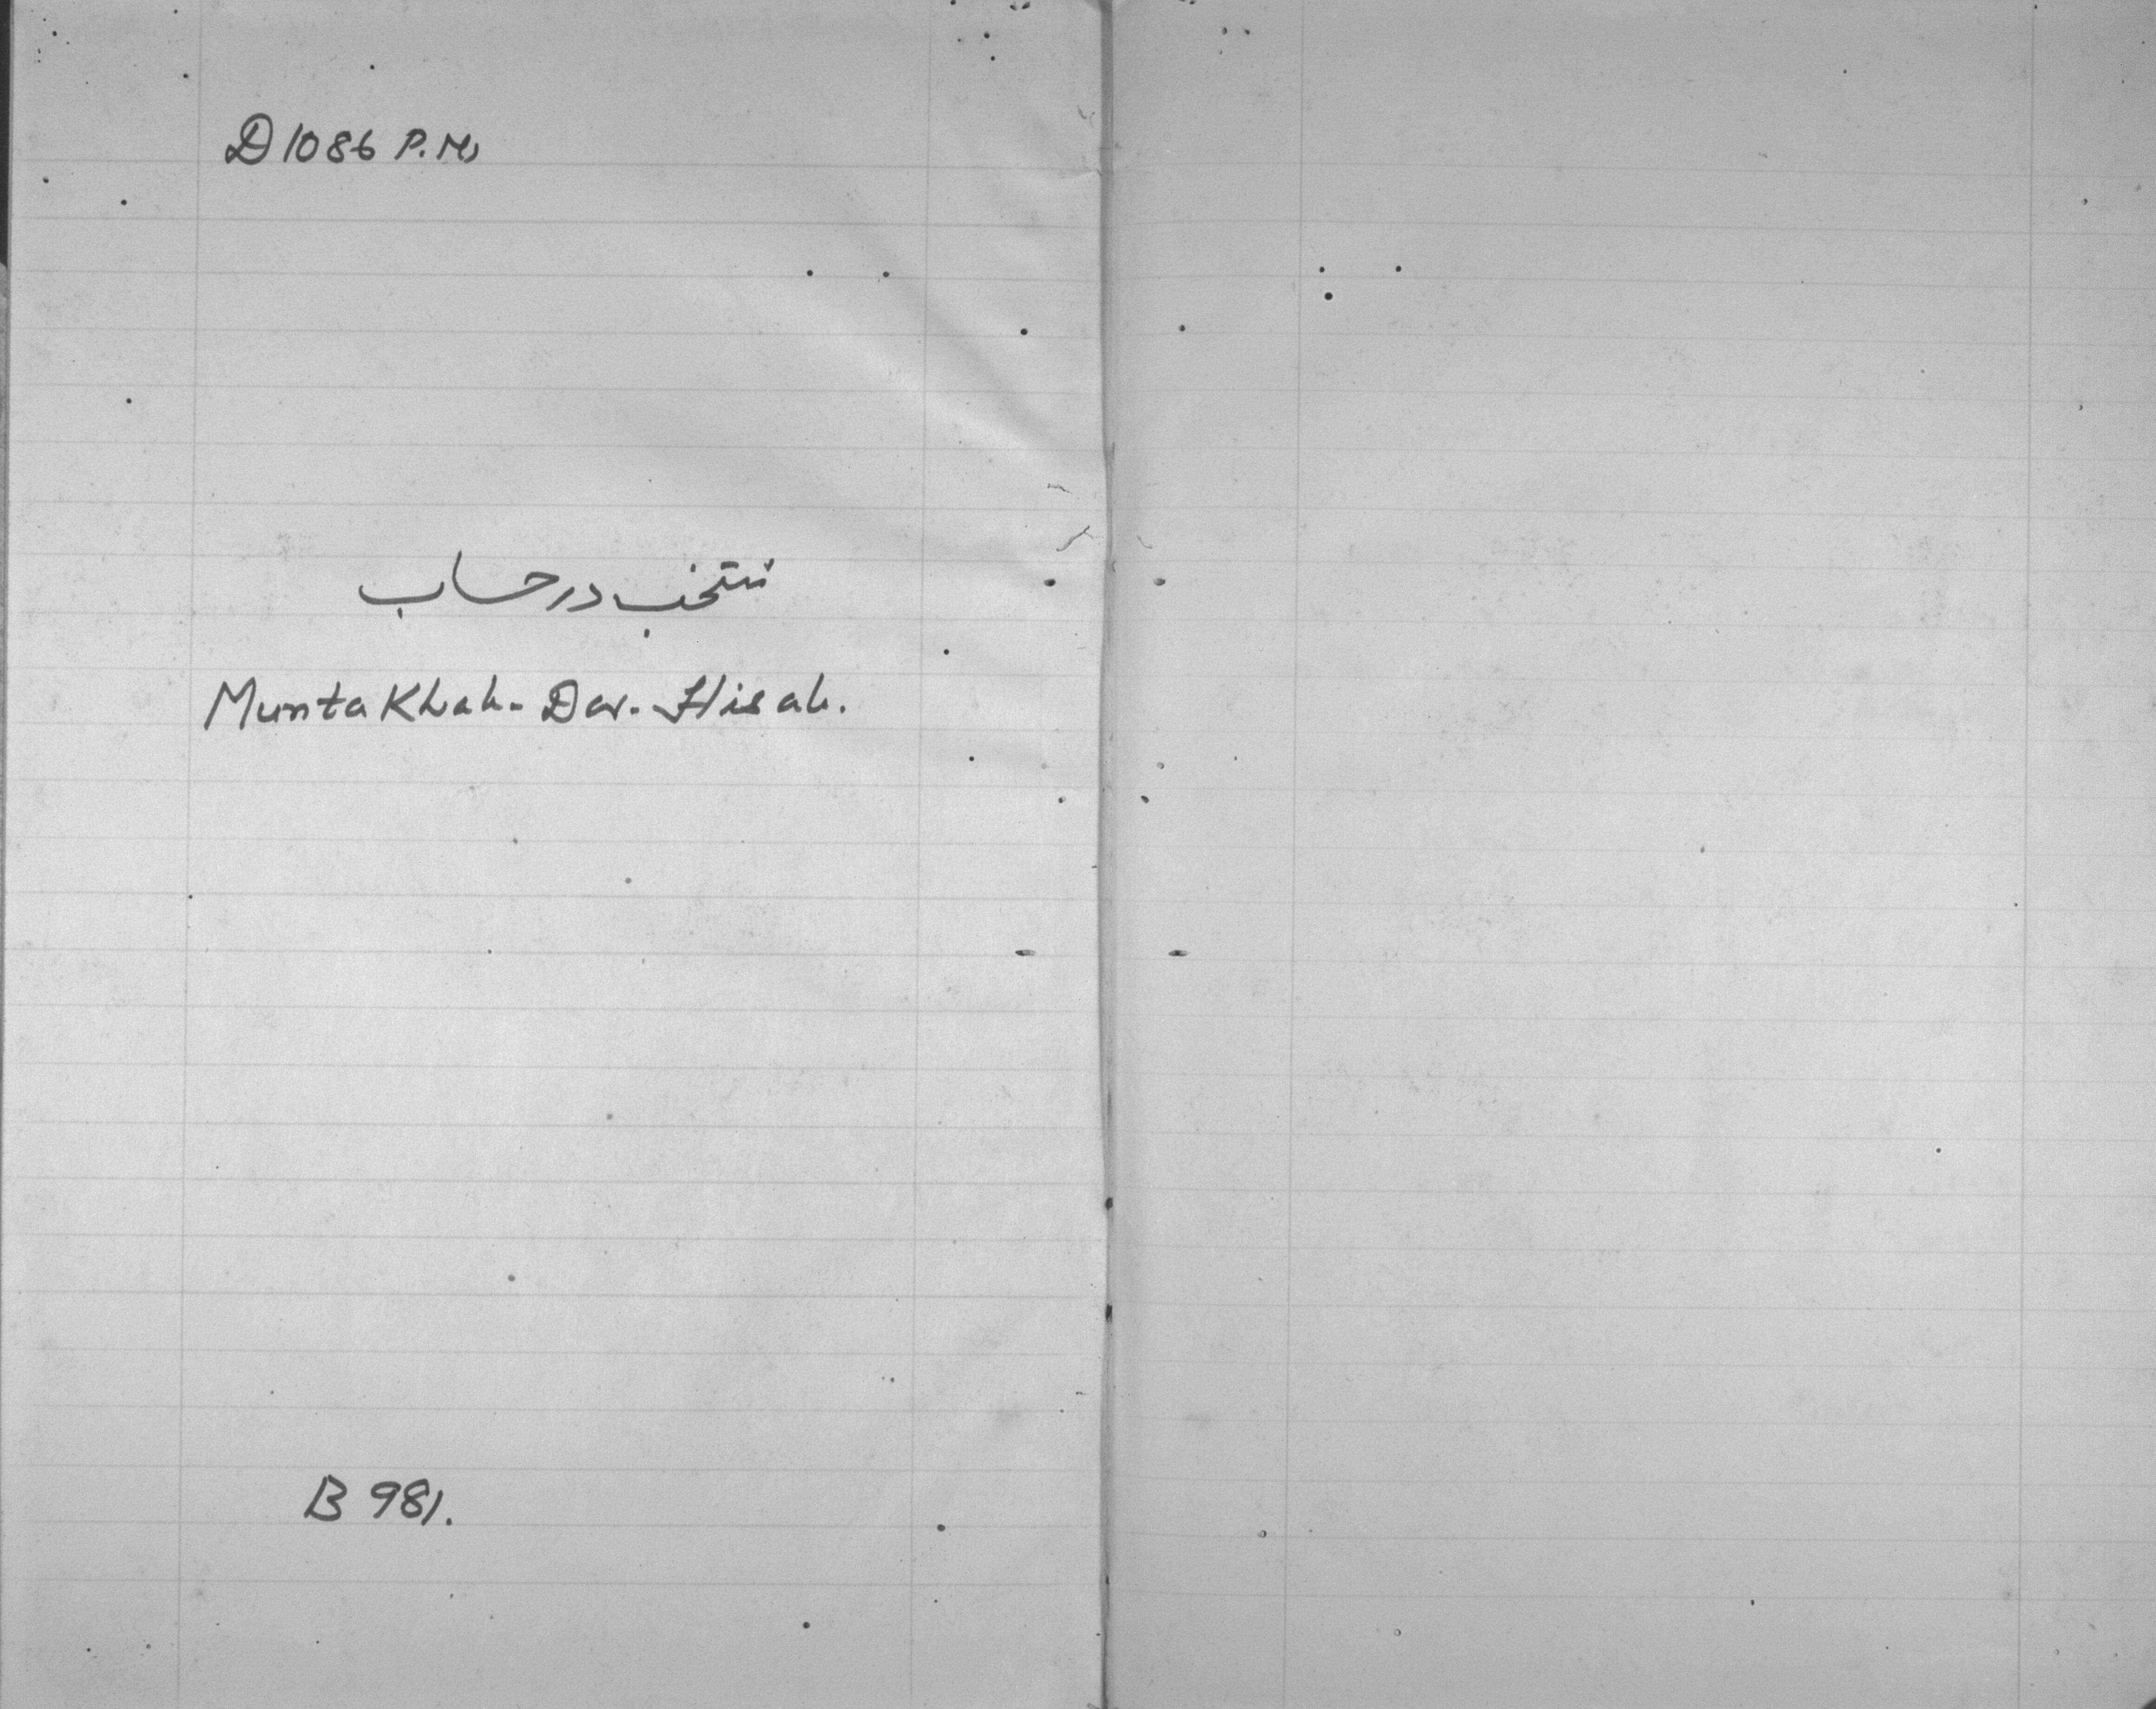 D 1086 P.M.
منتخب در حساب
Munta Khab- Dar- Hisab.
B 981.